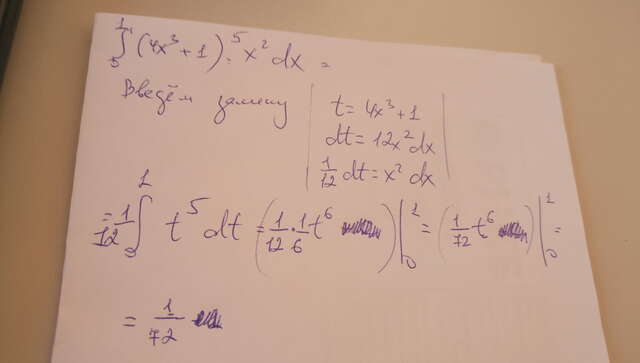 ∫₀¹ (4x³+1)·⁵ x² dx =
Введём замену
t = 4x³+1
dt = 12x² dx
1/12 dt = x² dx
= 1/12 ∫₀¹ t⁵ dt = (1/12 · 1/6 t⁶)|₀¹ = (1/72 t⁶)|₀¹ =
= 1/72